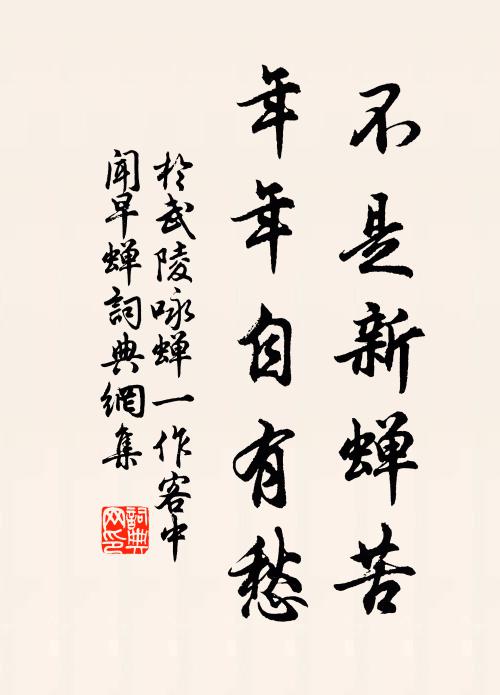 不是新蝉苦
年年自有愁
於武陵咏蝉一作客中
闻早蝉詞典網集
詞典
网印